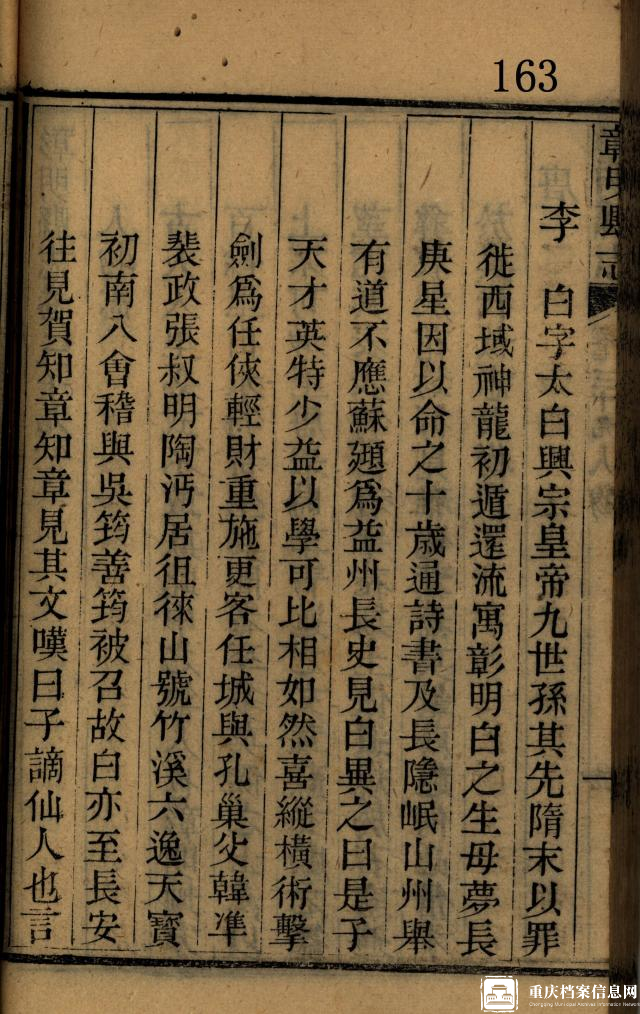 163
彰明縣志
李　白字太白興宗皇帝九世孫其先隋末以罪
徙西域神龍初遁還流寓彰明白之生母夢長
庚星因以命之十歲通詩書及長隱岷山州舉
有道不應蘇頲爲益州長史見白異之曰是子
天才英特少益以學可比相如然喜縱橫術擊
劍爲任俠輕財重施更客任城與孔巢父韓準
裴政張叔明陶沔居徂徠山號竹溪六逸天寶
初南入會稽與吳筠善筠被召故白亦至長安
往見賀知章知章見其文嘆曰子謫仙人也言
重庆档案信息网
Chongqing Municipal Archives Information Network